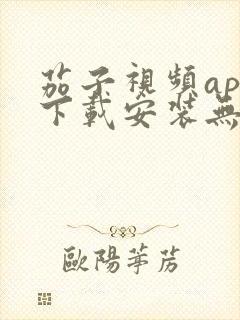 茄子視頻ap
下載安裝無
歐陽箏苈